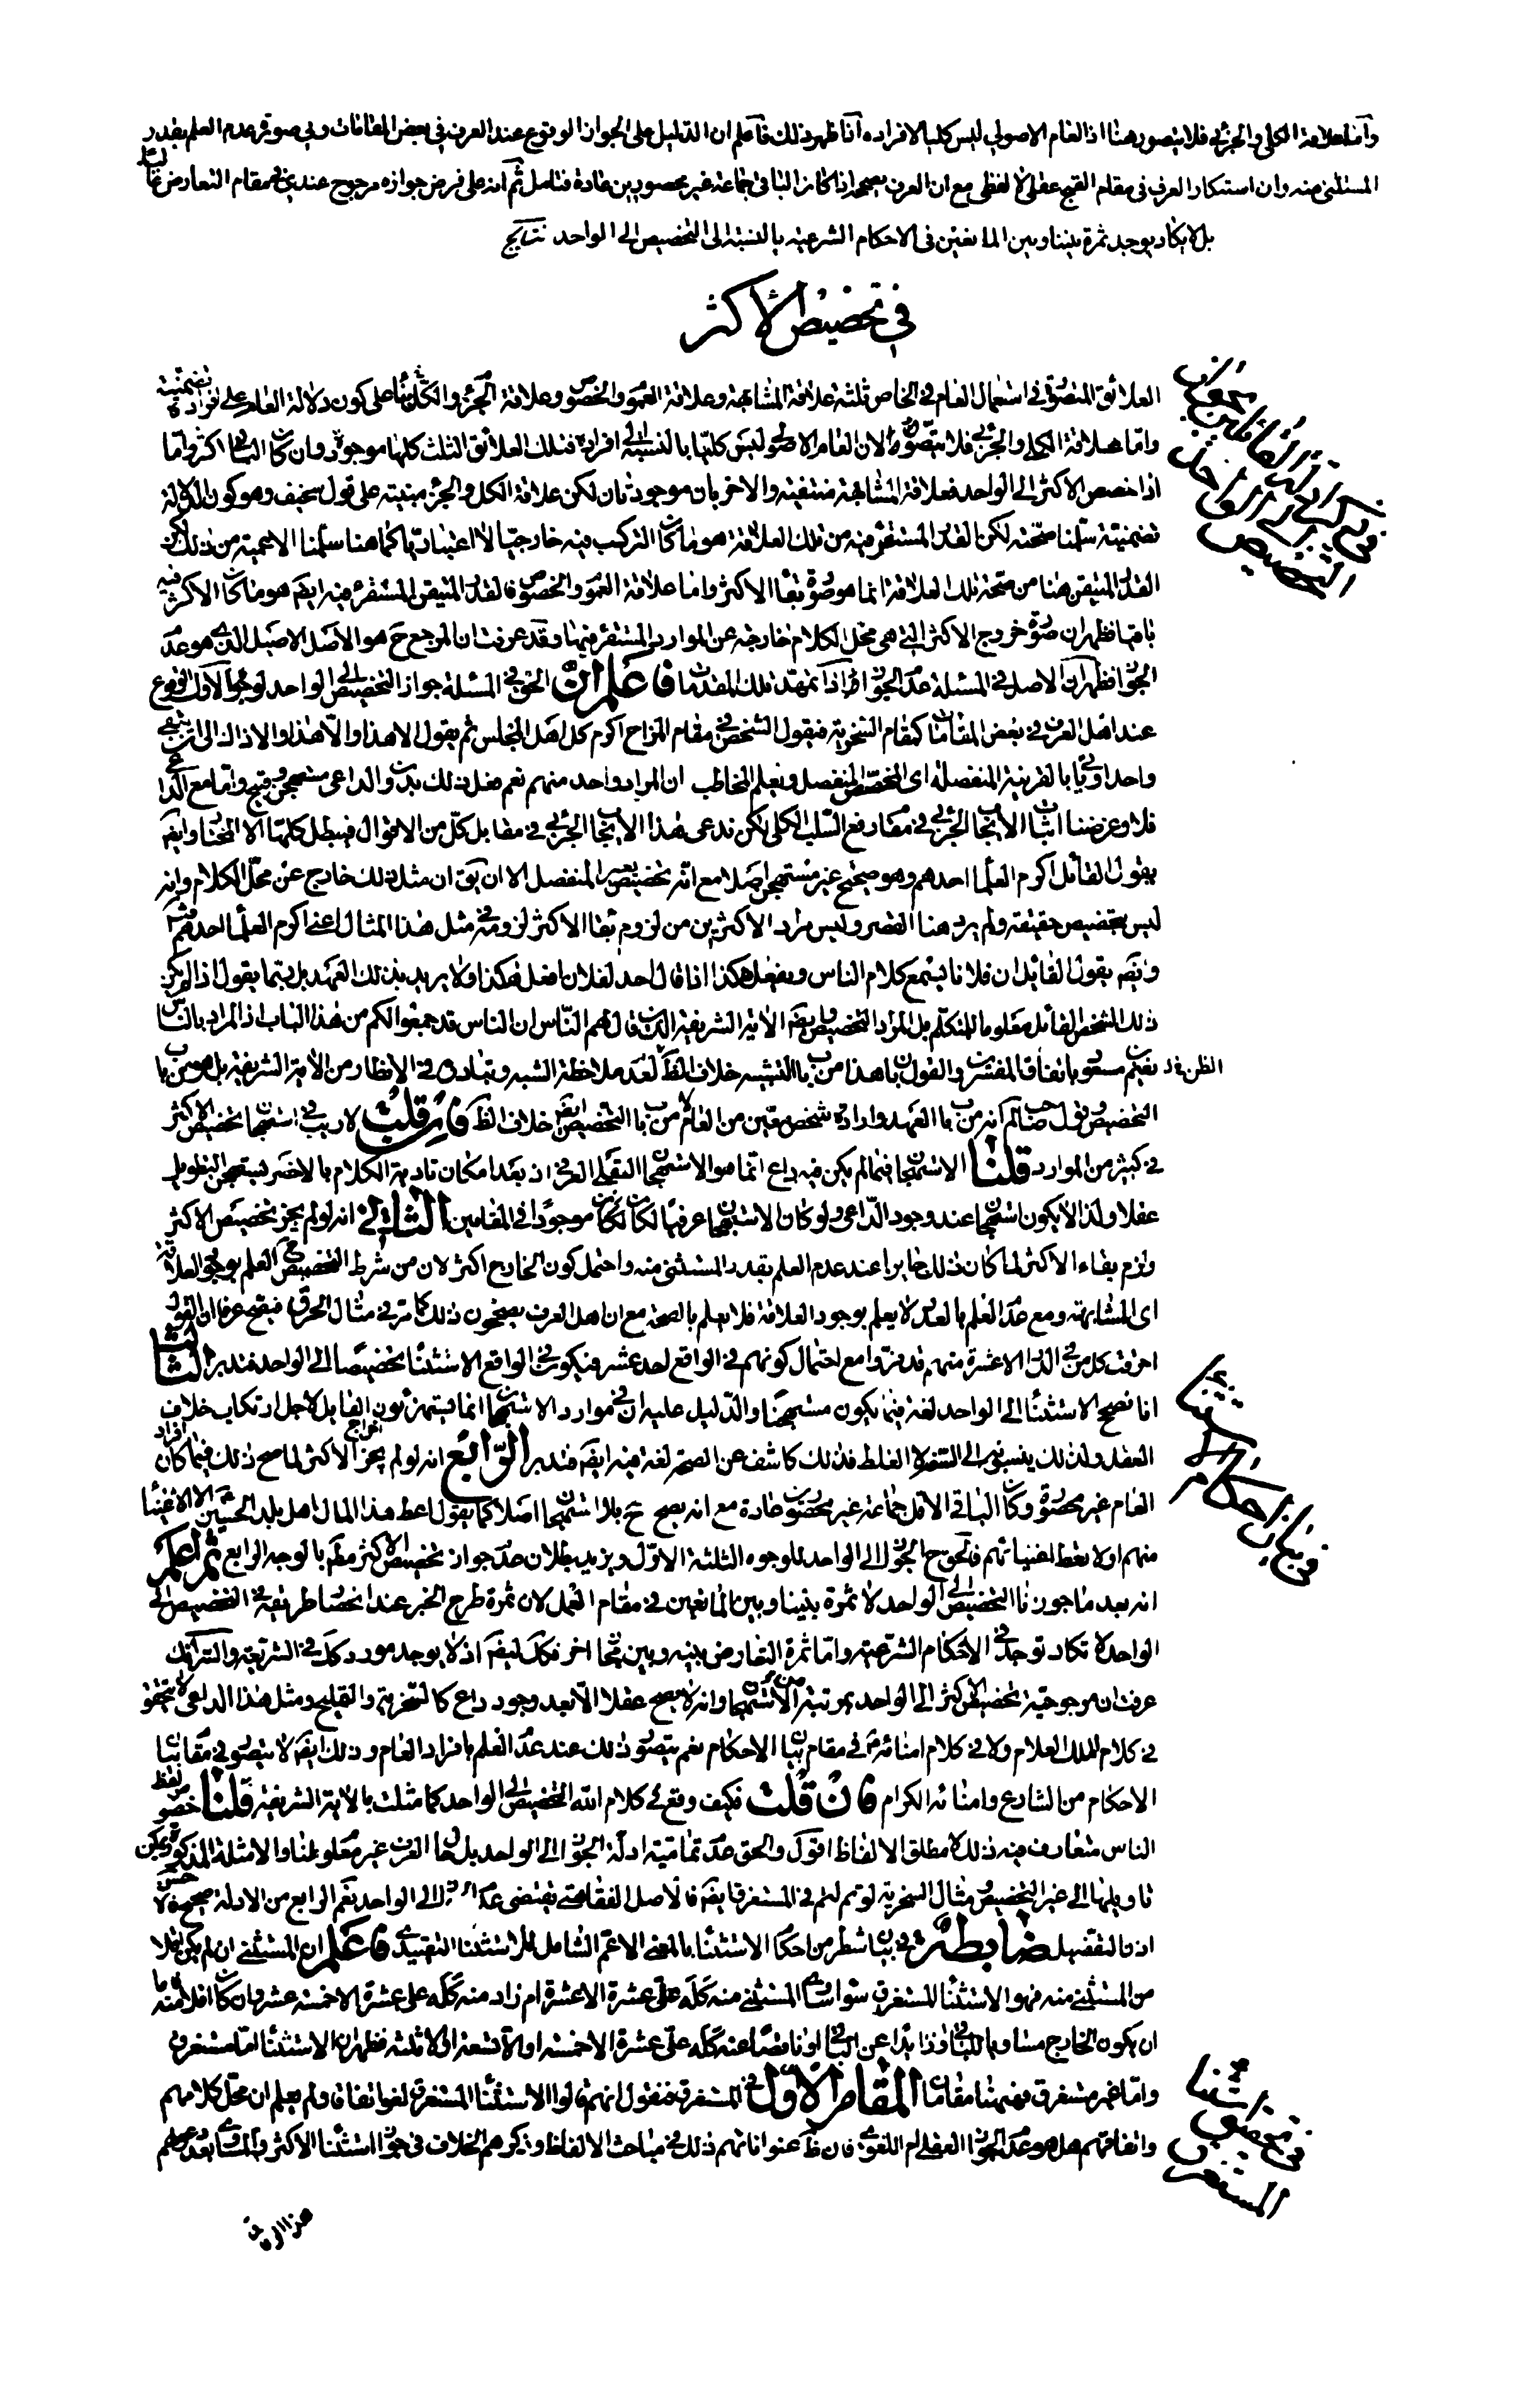 وأما علاقة الكلي والجزئي فلا يتصور هنا اذ العام الاصولي ليس كليا لافراده اذا ظهر ذلك فاعلم ان الدليل على الجواز الوقوع عند العرف في بعض المقامات وفي صورة عدم العلم بقدر
المستثنى منه وان استنكار العرف في مقام القبح عقلي لا لفظي مع ان العرف يصححه اذا كان الباقي جماعة غير محصورين عادة فتامل ثم انه على فرض جوازه مرجوح عندي في مقام التعارض
بل لا يكاد يوجد ثمرة بيننا وبين المانعين في الاحكام الشرعية بالنسبة الى التخصيص الى الواحد نتايج
في تخصيص الأكثر
العلائق المتصورة في استعمال العام في الخاص ثلثة علاقة المشابهة وعلاقة العموم والخصوص وعلاقة الجزء والكل بناء على كون دلالة العام على افراده تضمنية
واما علاقة الكلي والجزئي فلا متصورة لان العام الاصولي ليس كليا بالنسبة الى افراده فتلك العلائق الثلث كلها موجودة وان كان الباقي اكثر واما
اذا خصص الاكثر الى الواحد فعلاقة المشابهة منتفية والاخريان موجودتان لكن علاقة الكل والجزء مبنية على قول سخيف وهو كون الدلالة
تضمنية سلمنا صحته لكن القدر المستقرء فيه من تلك العلاقة هو ما كان التركب فيه خارجيا لا اعتباريا كما هنا سلمنا الاعمية من ذلك لكن
القدر المتيقن هنا من صحة تلك العلاقة انما هو صورة بقاء الاكثر واما علاقة العموم والخصوص فالقدر المتيقن المستقرء فيه ايضا هو ما كان الاكثر فيه
باقيا فظهر ان صورة خروج الاكثر التي هي محل الكلام خارجة عن الموارد المستقرء فيها وقد عرفت ان المرجع ح هو الاصل الاصيل الذي هو عدم
الجواز فظهر ان الاصل في المسئلة عدم الجواز اذا تمهد تلك المقدمات فاعلم ان الحق في المسئلة جواز التخصيص الى الواحد لوجوه الاول الوقوع
عند اهل العرف في بعض المقامات كمقام السخرية فيقول الشخص في مقام المزاح اكرم كل اهل المجلس ثم يقول الا هذا والا هذا والا ذاك الى ان يبقى
واحد او ياتي بالقرينة المنفصلة اى المخصص المنفصل ويعلم المخاطب ان المراد واحد منهم نعم فعل ذلك بدون الداعى مستهجن وقبيح واما مع الداعي
فلا وغرضنا اثبات الايجاب الجزئي في مقام رفع السلب الكلي لكن ندعى هذا الايجاب الجزئي في مقابل كل من الاقوال فيبطل كلها الا مختارنا وايضا
يقول القائل اكرم العلماء احدهم وهو صحيح غير مستهجن اصلا مع انه تخصيص بغير المنفصل الا ان يق ان مثل ذلك خارج عن محل الكلام وانه
ليس بتخصيص حقيقة ولم يرد هنا القصر وليس مراد الاكثرين من لزوم بقاء الاكثر لزومه في مثل هذا المثال اعني اكرم العلماء احدهم
وايضا يقول القائل ان فلانا يستمع كلام الناس ويفعل هكذا اذا قال احد لفلان افعل هكذا ولا يريد بذلك العهد بل ربما يقول اذا لم يكن
ذلك الشخص القائل معلوما للمتكلم بل المراد التخصيص وايضا الاية الشريفة الذين قال لهم الناس ان الناس قد جمعوا لكم من هذا الباب اذ المراد بالناس
نعيم بن مسعود باتفاق المفسرين والقول بان هذا من باب التشبيه خلاف الظ لعدم ملاحظة الشبه وتبادره في الانظار من الاية الشريفة بل هو من باب
التخصيص وقول صاحب لم انه من باب العهد وارادة شخص معين من العام لا من باب التخصيص ايضا خلاف الظ فان قلت لا ريب في استهجان تخصيص الاكثر
في كثير من الموارد قلنا الاستهجان فيما لم يكن فيه داع انما هو الاستهجان العقلى العرفي اذ بعد امكان تادية الكلام بالاخصر يستقبح التطويل
عقلا ولذا لا يكون استهجان عند وجود الداعى ولو كان الاستهجان عرفيا لكان موجودا في المقامين الثاني انه لو لم يجز تخصيص الاكثر
ولزم بقاء الاكثر لما كان ذلك جايزا عند عدم العلم بقدر المستثنى منه واحتمل كون الخارج اكثر لان من شرط صحة التخصيص العلم بوجود العلاقة
اى المشابهة ومع عدم العلم بالقدر لا يعلم بوجود العلاقة فلا يعلم بالصحة مع ان اهل العرف يصححون ذلك كما مر في مثال الحرق فيقبح عرفا ان القول
احرقت كل من في الدار الا عشرة منهم قد فروا مع احتمال كونهم في الواقع احد عشر فيكون في الواقع الاستثناء تخصيصا الى الواحد فتدبر الثالث
انا نصحح الاستثناء الى الواحد لغة فيما يكون مستهجنا والدليل عليه ان في موارد الاستهجان انما يستهزئون القايل لاجل ارتكاب خلاف
العقل ولذلك ينسبونه الى السفه لا الغلط فذلك كاشف عن الصحة لغة فيه ايضا فتدبر الرابع انه لو لم يجز اخراج الاكثر لما صح ذلك فيما كان افراد
العام غير محصورة وكان الباقي الاقل جماعة غير محصورين عادة مع انه يصح ح بلا استهجان اصلا كما يقول اعط هذا المال اهل بلد الحسين الا الاغنياء
منهم او لا تعط اغنيائهم فالحق ح الجواز الى الواحد للوجوه الثلثة الاول ويزيد بطلان عدم جواز تخصيص الاكثر مطم بالوجه الرابع ثم اعلم
انه بعد ما جوزنا التخصيص الى الواحد لا ثمرة بيننا وبين المانعين في مقام العمل لان ثمرة طرح الخبر عند انحصار طريقه في التخصيص الى
الواحد لا تكاد توجد في الاحكام الشرعية واما ثمرة التعارض بينه وبين مجاز اخر فكك ايضا اذ لا يوجد مورد كك في الشريعة والسر انك
عرفت ان مرجوحية تخصيص الاكثر الى الواحد بمرتبة من الاستهجان وانه لا يصح عقلا الا بعد وجود داع كالسخرية والقليح ومثل هذا الداعى لا يتحقق
في كلام الملك العلام ولا في كلام امنائه في مقام بيان الاحكام نعم يتصور ذلك عند عدم العلم بافراد العام وذلك ايضا لا يتصور في مقام بيان
الاحكام من الشارع وامنائه الكرام فان قلت فكيف وقع في كلام الله التخصيص الى الواحد كما مثلت بالاية الشريفة قلنا خصوص لفظ
الناس متعارف فيه ذلك لا مطلق الالفاظ اقول والحق عدم تمامية ادلة الجواز الى الواحد بل حال العرف غير معلوم لنا والامثلة المذكورة يمكن
تاويلها الى غير التخصيص مثال السخرية لو تم لتم في المستغرق ايضا فالاصل الفقاهتي يقتضى عدم الى الواحد نعم الرابع من الادلة صحيح
اذن التفصيل ضابطة في بيان شطر من احكام الاستثناء بالمعنى الاعم الشامل للاستثناء التقييدي فاعلم ان المستثنى ان لم يكن اقلا
من المستثنى منه فهو الاستثناء المستغرق سواء ساوى المستثنى منه كله على عشرة الا عشرة ام زاد منه كله على عشرة الا خمسة عشر وان كان اقلا منه فاما
ان يكون الخارج مساويا للباقي او زائدا عن الباقي او ناقصا عنه كله على عشرة الا خمسة او الا تسعة او الا ثلثة فظهر ان الاستثناء اما مستغرق
واما غير مستغرق فهيهنا مقامان المقام الاول في المستغرق فنقول انهم قالوا الاستثناء المستغرق لغو اتفاقا ولم يعلم ان محل كلامهم
واتفاقهم هل هو عدم الجواز العقلي ام اللغوي فان ظ عنوانهم ذلك في مباحث الالفاظ وذكرهم الخلاف في جواز استثناء الاكثر والمساوي بعد حكمهم
في بيان احكام الاستثناء
المستغرق